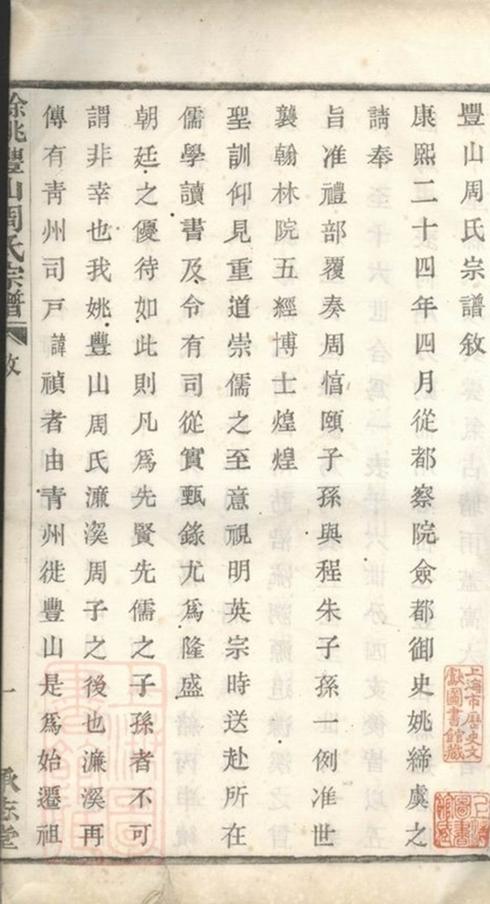 豐山周氏宗譜敘
康熙二十四年四月從都察院僉都御史姚締虞之
請奉
旨准禮部覆奏周惇頤子孫與程朱子孫一例准世
襲翰林院五經博士煌煌
聖訓仰見重道崇儒之至意視明英宗時送赴所在
儒學讀書及令有司從實甄錄尤爲隆盛
朝廷之優待如此則凡爲先賢先儒之子孫者不可
謂非幸也我姚豐山周氏濂溪周子之後也濂溪再
傳有靑州司戸諱禎者由靑州徙豐山是爲始遷祖
餘姚豐山周氏宗譜
敘
一
承志堂
上海市歷史文
獻圖書館藏